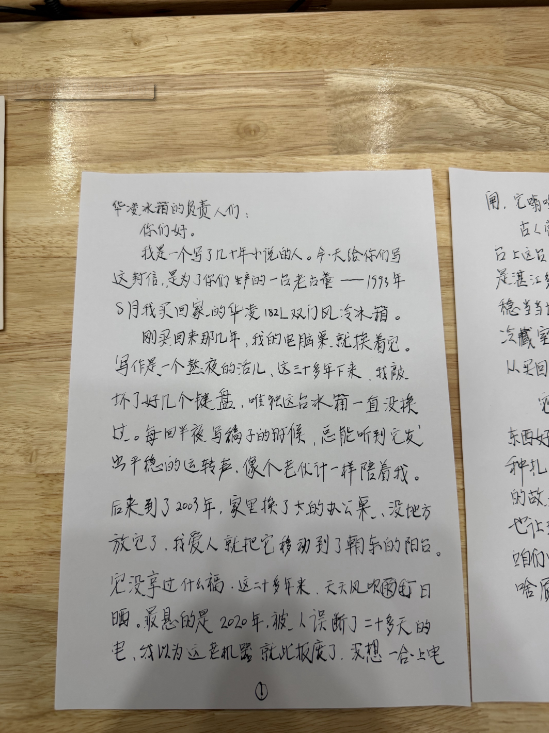 华凌冰箱的负责人们：
你们好。
我是一个写了几十年小说的人。今天给你们写
这封信，是为了你们生产的一台老古董——1993年
5月我买回家的华凌182L双门风冷冰箱。
刚买回来那几年，我的电脑桌就挨着它。
写作是一个熬夜的活儿，这三十多年下来，我敲
坏了好几个键盘，唯独这台冰箱一直没换
过。每回半夜写稿子的时候，总能听到它发
出平稳的运转声，像个老伙计一样陪着我。
后来到了2003年，家里换了大的办公桌、没地方
放它了，我爱人就把它移动到了朝东的阳台。
它没享过什么福，这二十多年来，天天风吹雨打日
晒。最悬的是2020年，被人误断了二十多天的
电，我以为这老机器就此报废了，没想一合上电
①
用，它嘀
古人
台上这台
是湛江
稳当当
冷藏室
从买回
东西好
种扎
的故
也让
咱们
啥